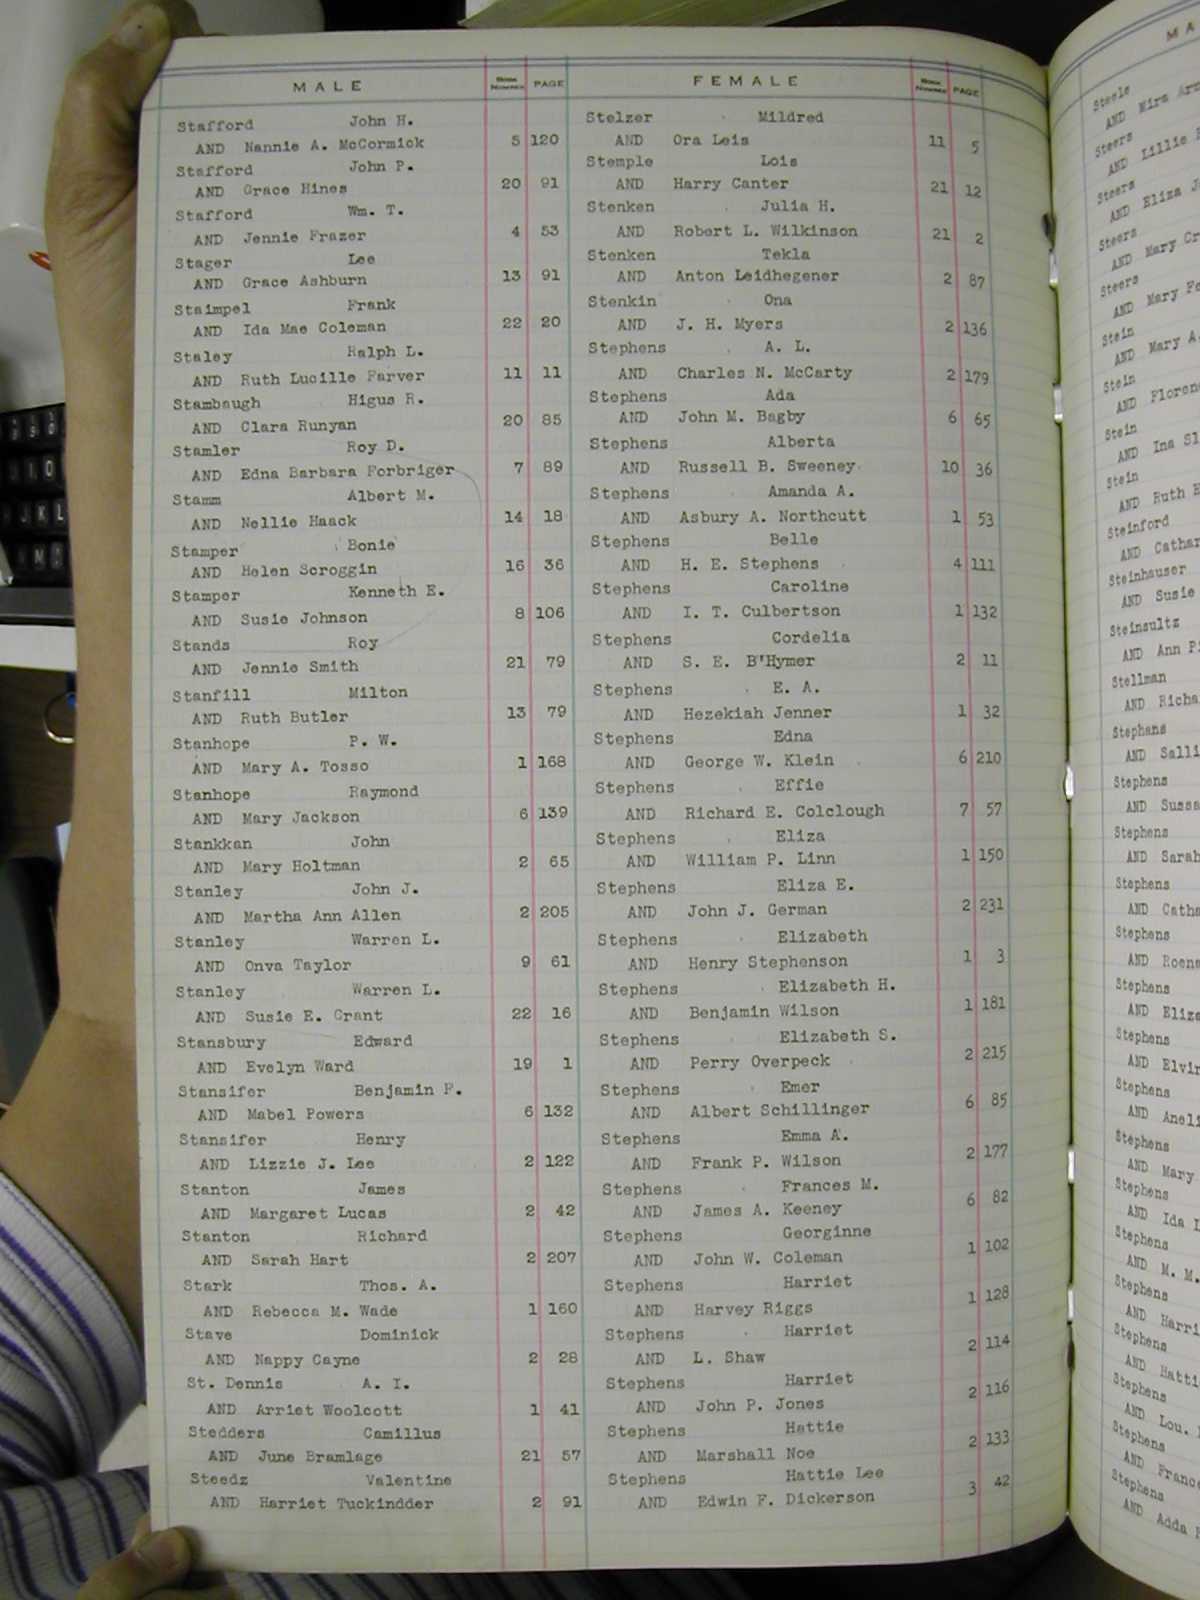 MALE BOOK NUMBER PAGE
Stafford John H.
AND Nannie A. McCormick 5 120
Stafford John P.
AND Grace Hines 20 91
Stafford Wm. T.
AND Jennie Frazer 4 53
Stager Lee
AND Grace Ashburn 13 91
Staimpel Frank
AND Ida Mae Coleman 22 20
Staley Ralph L.
AND Ruth Lucille Farver 11 11
Stambaugh Higus R.
AND Clara Runyan 20 85
Stamler Roy D.
AND Edna Barbara Forbriger 7 89
Stamm Albert M.
AND Nellie Haack 14 18
Stamper Bonie
AND Helen Scroggin 16 36
Stamper Kenneth E.
AND Susie Johnson 8 106
Stands Roy
AND Jennie Smith 21 79
Stanfill Milton
AND Ruth Butler 13 79
Stanhope P. W.
AND Mary A. Tosso 1 168
Stanhope Raymond
AND Mary Jackson 6 139
Stankkan John
AND Mary Holtman 2 65
Stanley John J.
AND Martha Ann Allen 2 205
Stanley Warren L.
AND Onva Taylor 9 61
Stanley Warren L.
AND Susie E. Grant 22 16
Stansbury Edward
AND Evelyn Ward 19 1
Stansifer Benjamin F.
AND Mabel Powers 6 132
Stansifer Henry
AND Lizzie J. Lee 2 122
Stanton James
AND Margaret Lucas 2 42
Stanton Richard
AND Sarah Hart 2 207
Stark Thos. A.
AND Rebecca M. Wade 1 160
Stave Dominick
AND Nappy Cayne 2 28
St. Dennis A. I.
AND Arriet Woolcott 1 41
Stedders Camillus
AND June Bramlage 21 57
Steedz Valentine
AND Harriet Tuckindder 2 91
FEMALE BOOK NUMBER PAGE
Stelzer Mildred
AND Ora Leis 11 5
Stemple Lois
AND Harry Canter 21 12
Stenken Julia H.
AND Robert L. Wilkinson 21 2
Stenken Tekla
AND Anton Leidhegener 2 87
Stenkin Ona
AND J. H. Myers 2 136
Stephens A. L.
AND Charles N. McCarty 2 179
Stephens Ada
AND John M. Bagby 6 65
Stephens Alberta
AND Russell B. Sweeney 10 36
Stephens Amanda A.
AND Asbury A. Northcutt 1 53
Stephens Belle
AND H. E. Stephens 4 111
Stephens Caroline
AND I. T. Culbertson 1 132
Stephens Cordelia
AND S. E. B'Hymer 2 11
Stephens E. A.
AND Hezekiah Jenner 1 32
Stephens Edna
AND George W. Klein 6 210
Stephens Effie
AND Richard E. Colclough 7 57
Stephens Eliza
AND William P. Linn 1 150
Stephens Eliza E.
AND John J. German 2 231
Stephens Elizabeth
AND Henry Stephenson 1 3
Stephens Elizabeth H.
AND Benjamin Wilson 1 181
Stephens Elizabeth S.
AND Perry Overpeck 2 215
Stephens Emer
AND Albert Schillinger 6 85
Stephens Emma A.
AND Frank P. Wilson 2 177
Stephens Frances M.
AND James A. Keeney 6 82
Stephens Georginne
AND John W. Coleman 1 102
Stephens Harriet
AND Harvey Riggs 1 128
Stephens Harriet
AND L. Shaw 2 114
Stephens Harriet
AND John P. Jones 2 116
Stephens Hattie
AND Marshall Noe 2 133
Stephens Hattie Lee
AND Edwin F. Dickerson 3 42
Steele
AND Mira
Steers
AND Lillie
Steers
AND Eliza
Steers
AND Mary
Steers
AND Mary
Stein
AND Mary A.
Stein
AND
Stein
AND Ina
Stein
AND Ruth
Steinford
AND
Steinhauser
AND Susie
Steinsultz
AND Ann
Stellman
AND
Stephans
AND
Stephens
AND
Stephens
AND Sarah
Stephens
AND
Stephens
AND
Stephens
AND
Stephens
AND
Stephens
AND
Stephens
AND Mary
Stephens
AND Ida
Stephens
AND M. M.
Stephens
AND
Stephens
AND
Stephens
AND Lou.
Stephens
AND
Stephens
AND Adda